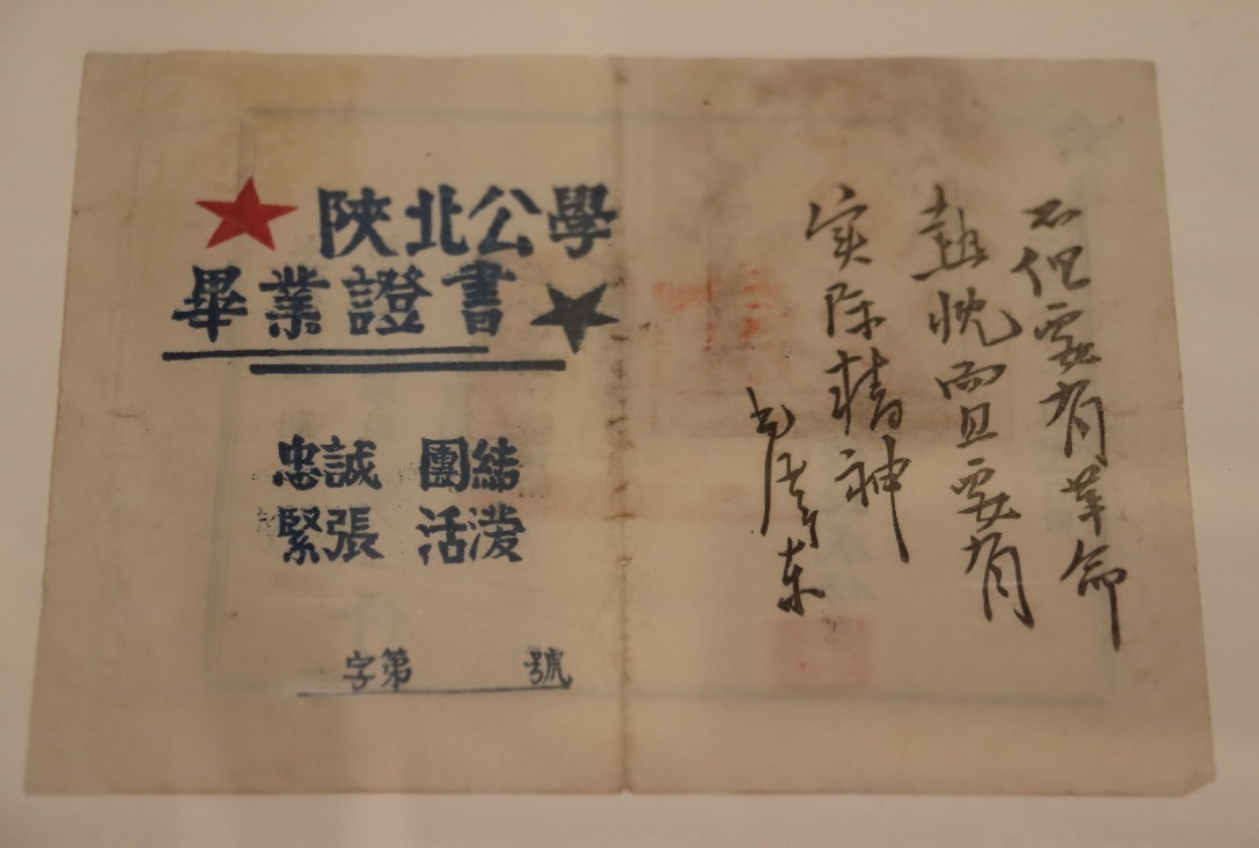 陝北公學
畢業證書
忠誠 團結
緊張 活潑
字第 號
不但要有革命
热忱而且要有
实际精神
毛澤东